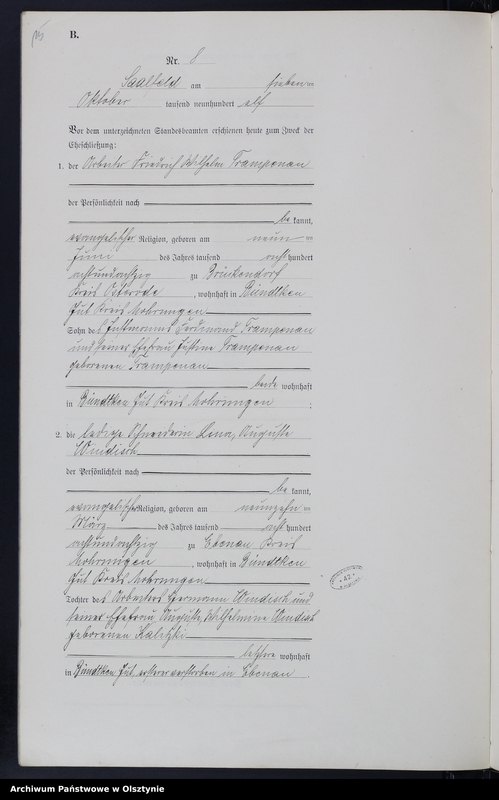 B.
Nr. 8
Saalfeld am sieben ten
Oktober tausend neunhundert elf
Vor dem unterzeichneten Standesbeamten erschienen heute zum Zweck der
Eheschließung:
1. der Arbeiter Friedrich Wilhelm Tramponau
der Persönlichkeit nach
be kannt,
evangelischer Religion, geboren am neun ten
Juni des Jahres tausend acht hundert
achtundachtzig zu
Kreis Osterode, wohnhaft in Bündtken
Gut Kreis Mohrungen
Sohn des Instmannes Ferdinand Tramponau
und seiner Ehefrau Justine Tramponau
geborenen Tramponau
beide wohnhaft
in Bündtken Gut Kreis Mohrungen ;
2. die ledige Schneiderin Lina, Auguste
Windisch
der Persönlichkeit nach
be kannt,
evangelischer Religion, geboren am neunzehn ten
März des Jahres tausend acht hundert
achtundachtzig zu Ebenau Kreis
Mohrungen, wohnhaft in Bündtken
Gut Kreis Mohrungen
Tochter des Arbeiters Hermann Windisch und
seiner Ehefrau Auguste, Wilhelmine Windisch
geborenen Kalitzki
letztere wohnhaft
in Bündtken Gut, ersterer verstorben in Ebenau .
42
Archiwum Państwowe w Olsztynie